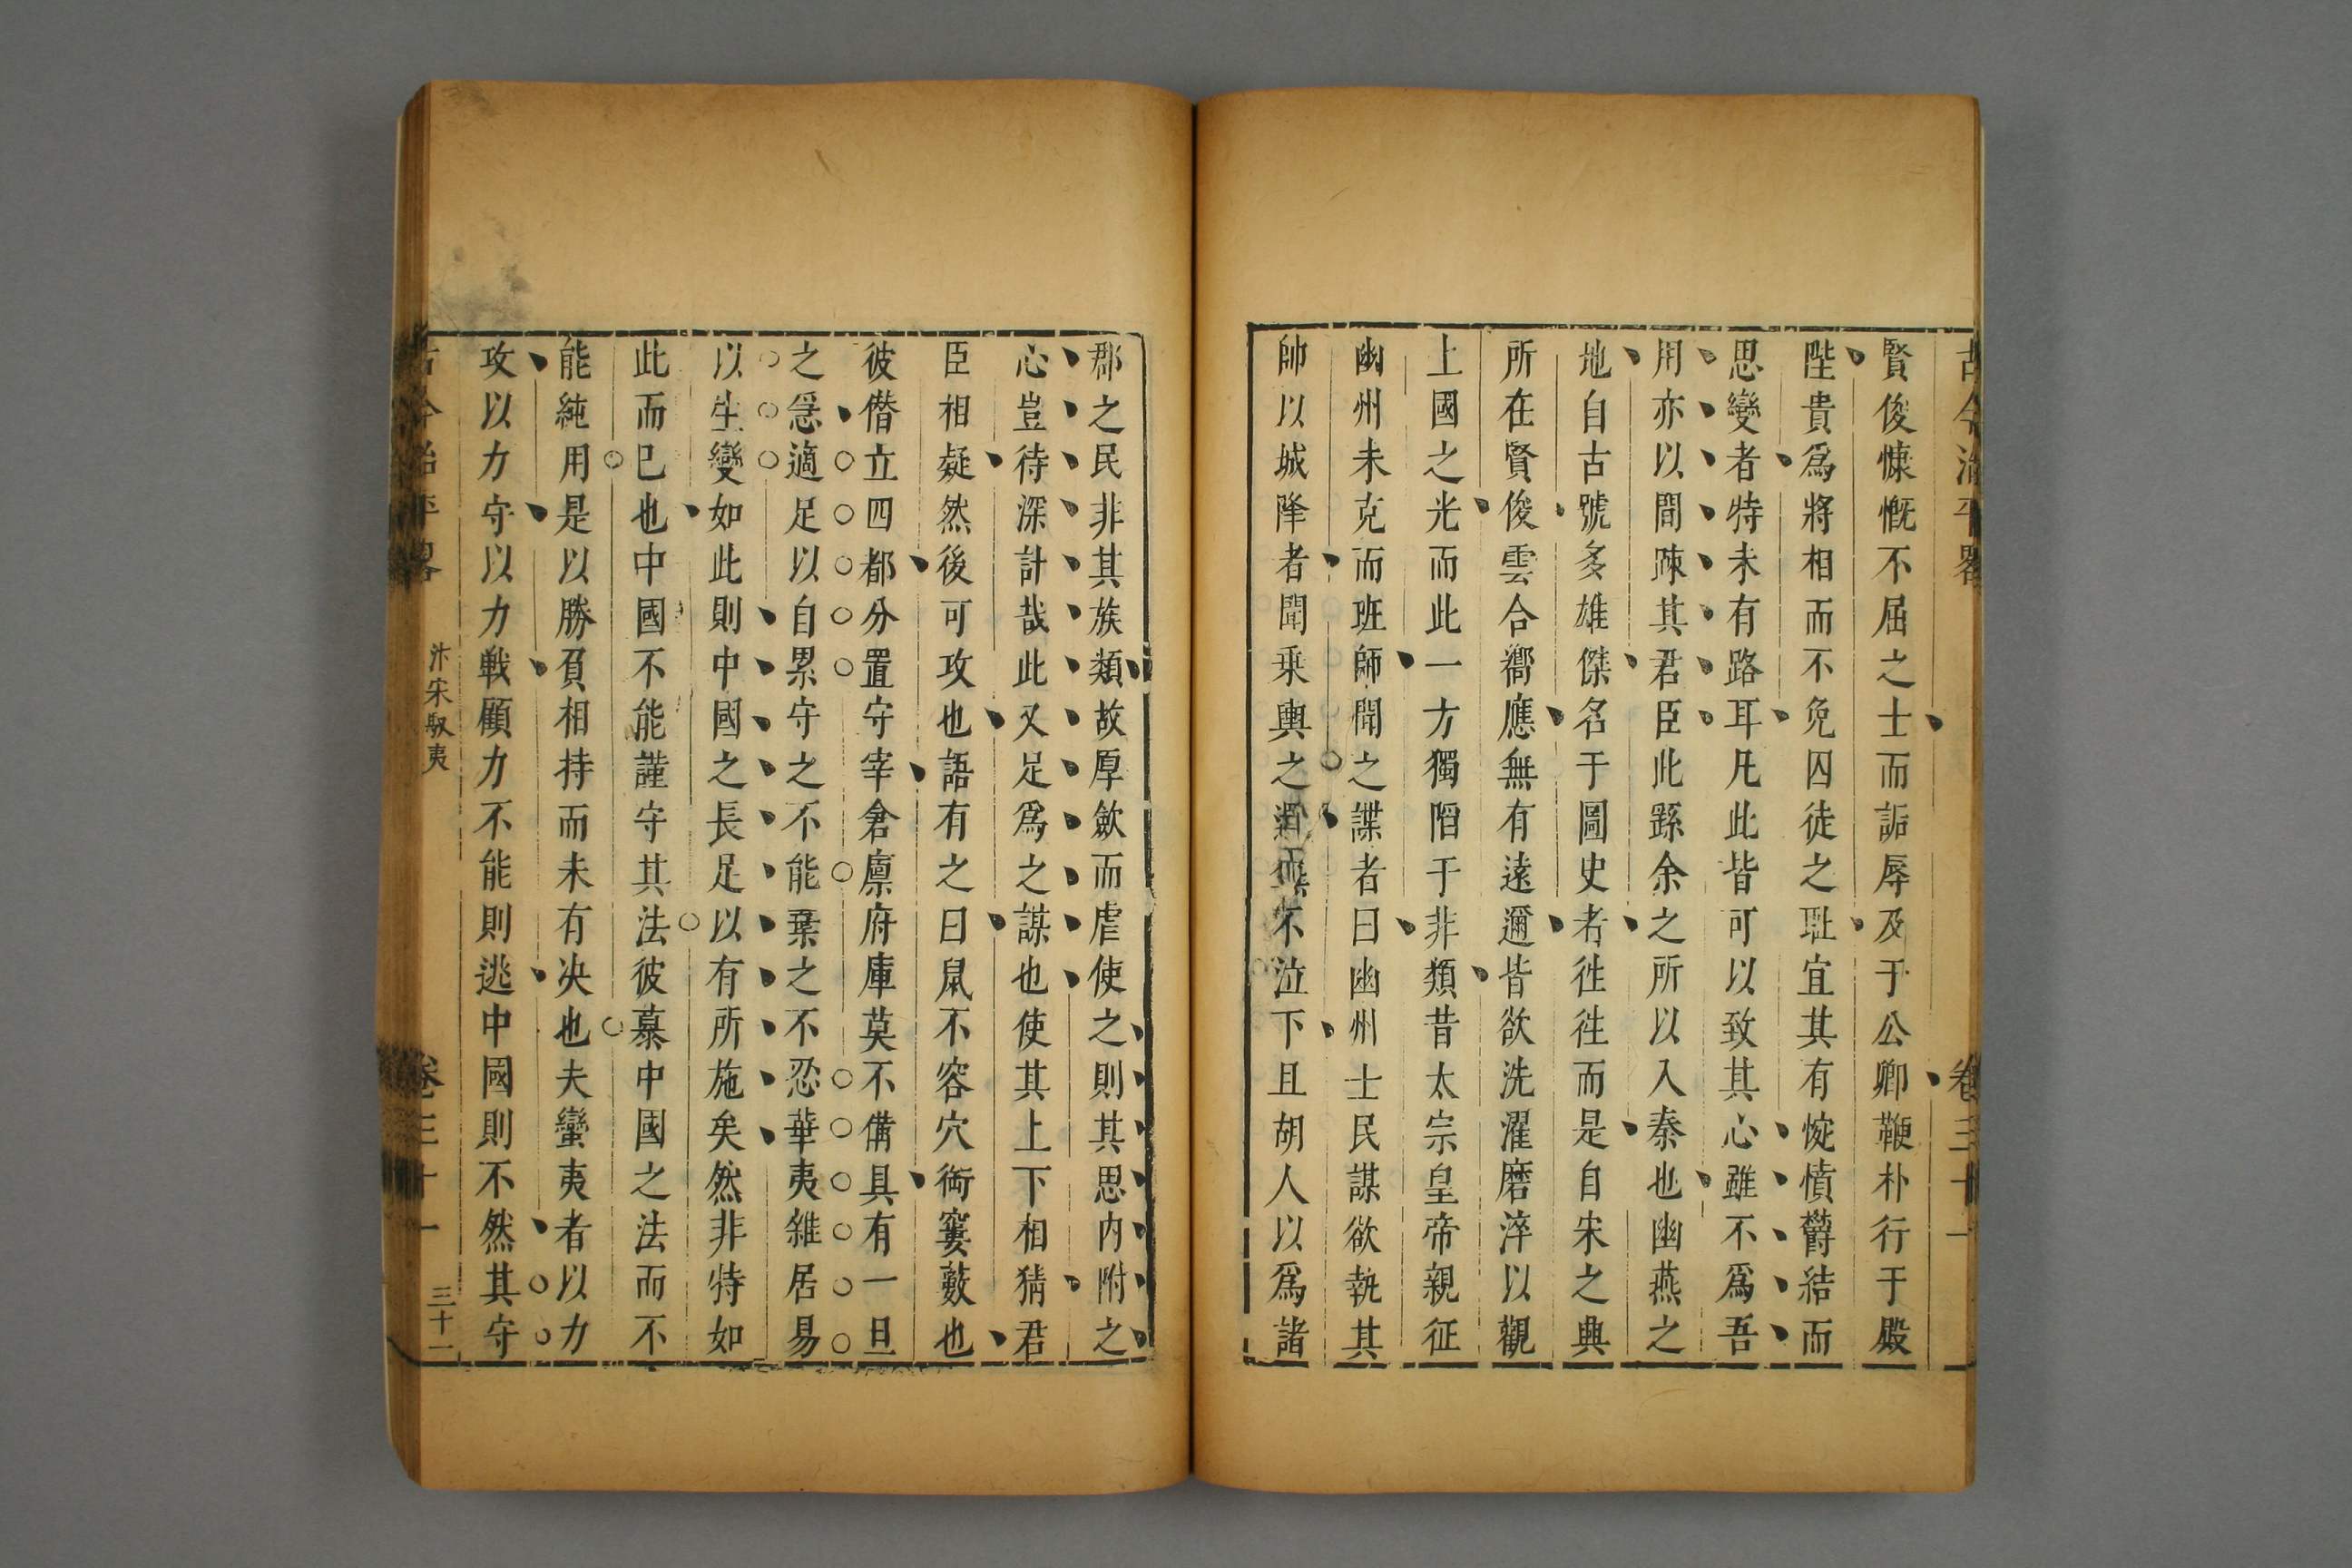 古今治平畧 卷三十一
賢俊慷慨不屈之士而詬辱及于公卿鞭朴行于殿
陛貴爲將相而不免囚徒之耻宜其有惋憤鬱結而
思變者特未有路耳凡此皆可以致其心雖不爲吾
用亦以間踈其君臣此繇余之所以入秦也幽燕之
地自古號多雄傑名于圖史者徃徃而是自宋之興
所在賢俊雲合嚮應無有遠邇皆欲洗濯磨淬以觀
上國之光而此一方獨陷于非類昔太宗皇帝親征
幽州未克而班師聞之諜者曰幽州士民謀欲執其
帥以城降者聞乗輿之還無不泣下且胡人以爲諸
郡之民非其族類故厚斂而虐使之則其思内附之
心豈待深計哉此又足爲之謀也使其上下相猜君
臣相疑然後可攻也語有之曰鼠不容穴銜窶藪也
彼僭立四都分置守宰倉廩府庫莫不備具有一旦
之急適足以自累守之不能棄之不忍華夷雜居易
以生變如此則中國之長足以有所施矣然非特如
此而巳也中國不能謹守其法彼慕中國之法而不
能純用是以勝負相持而未有决也夫蠻夷者以力
攻以力守以力戰顧力不能則逃中國則不然其守
古今治平畧 汴宋馭夷 卷三十一 三十一